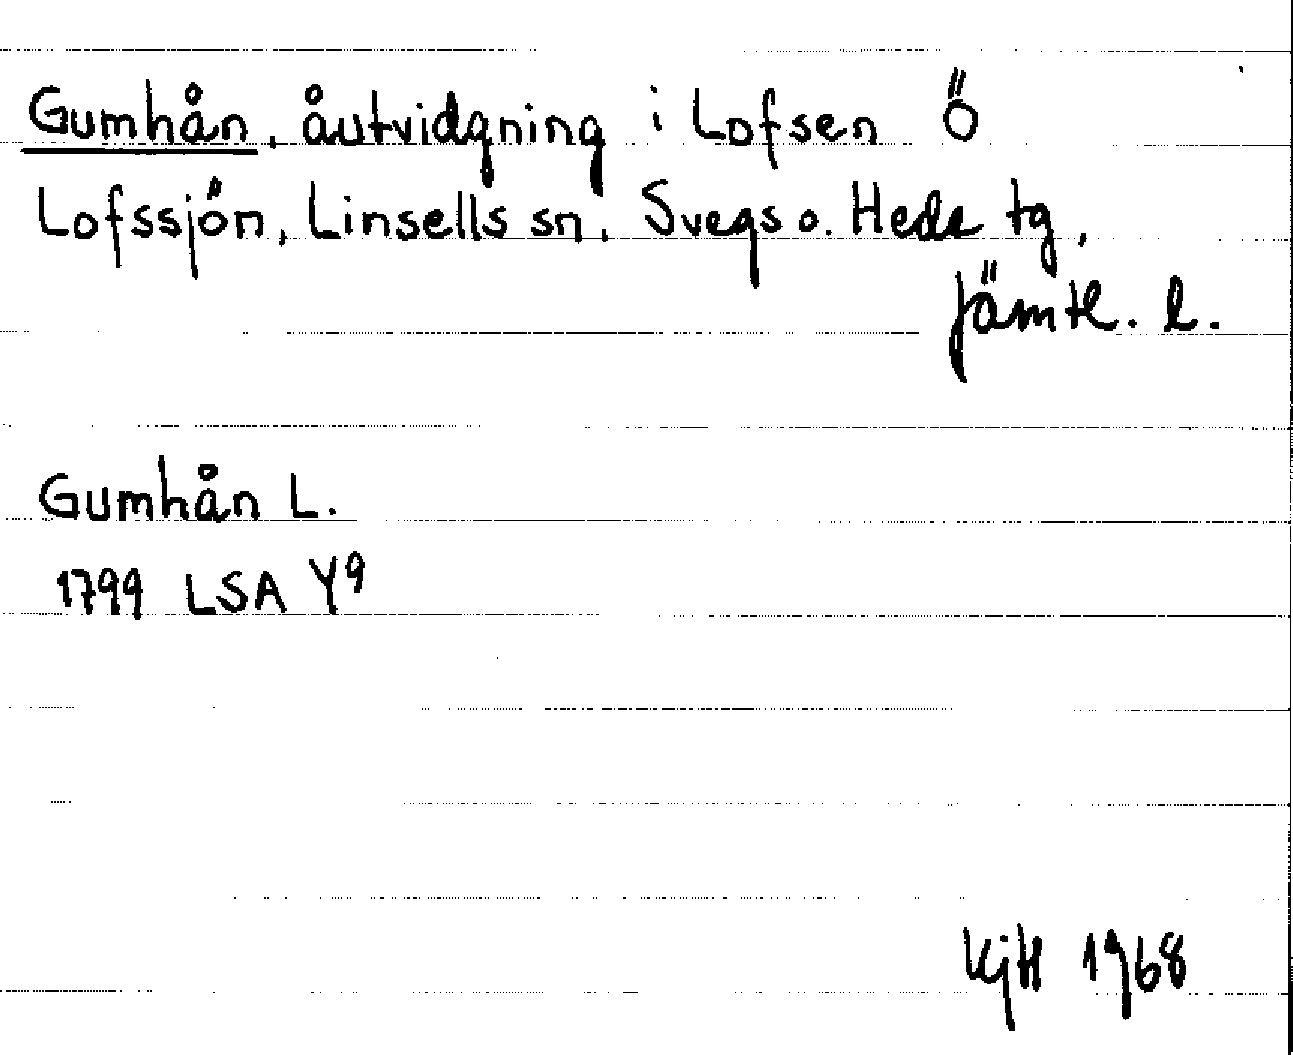 Gumhån, åutvidgning i Lofsen Ö
Lofssjön, Linsells sn, Svegs o. Heds tg,
Jämtl. l.
Gumhån L.
1799 LSA Y9
KjH 1968